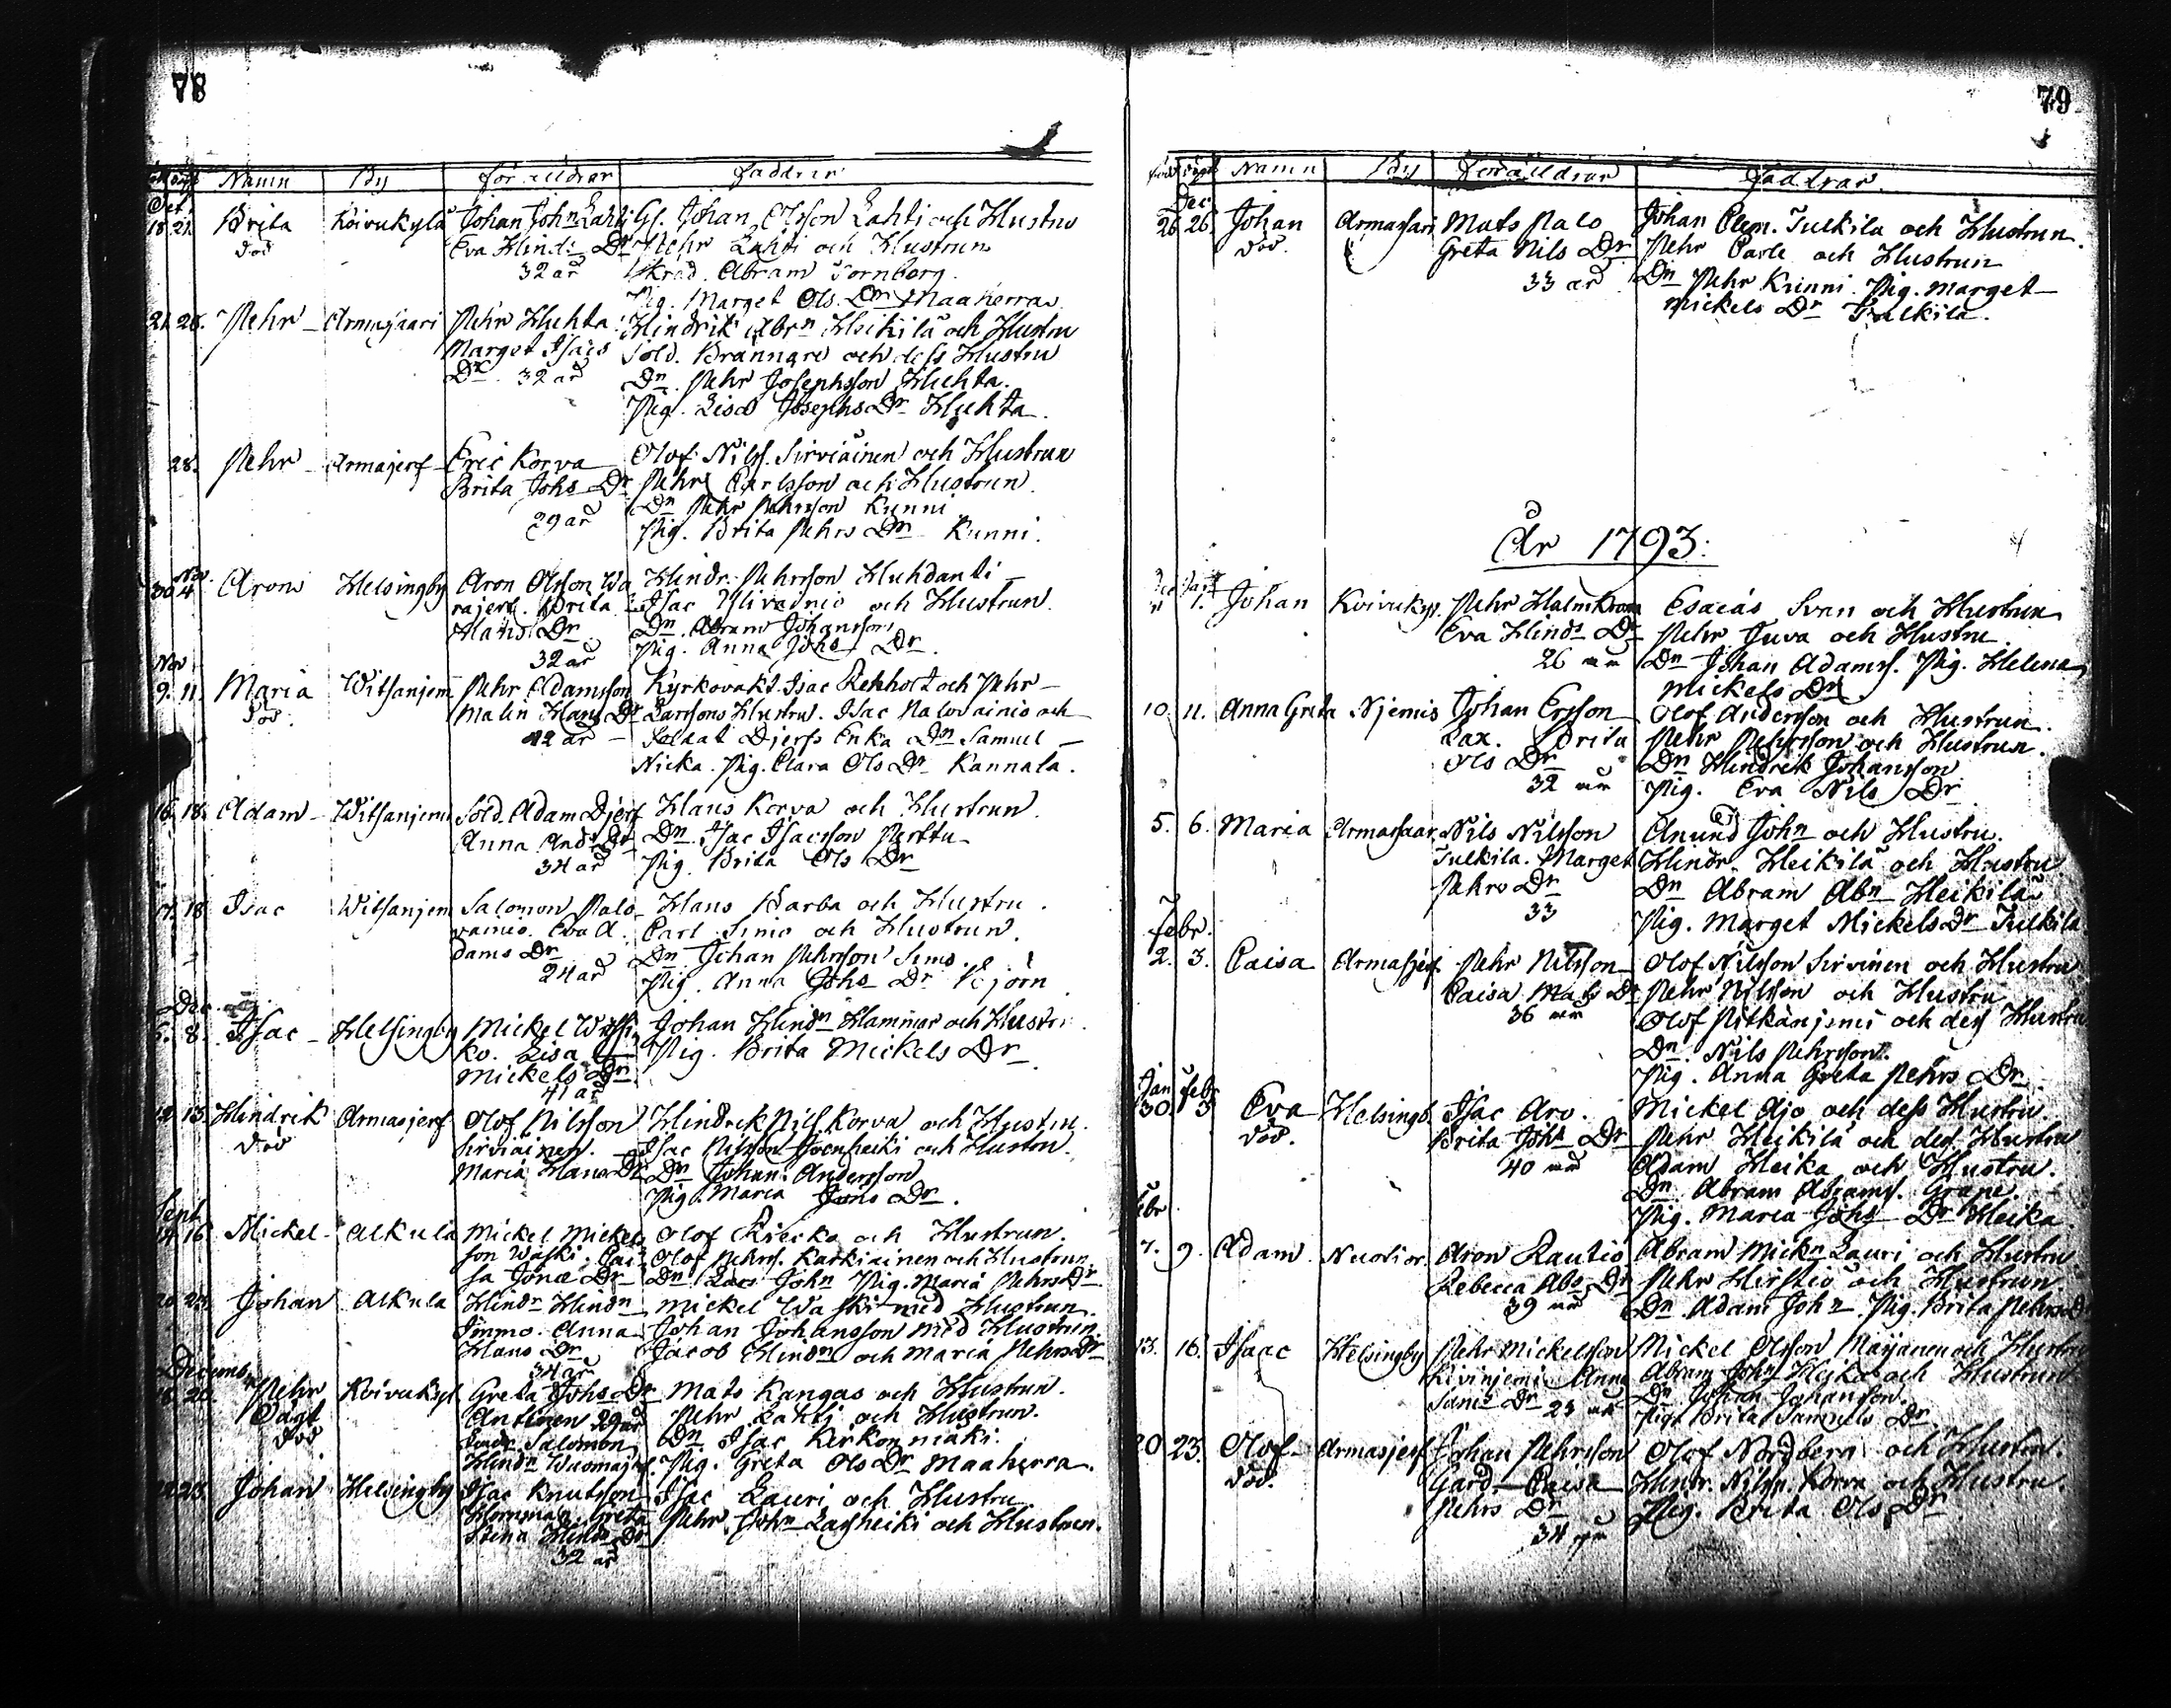 78
Namn By föräldrar faddrar
Oct.
18. 21. Brita Koivukylä Johan John Lahti Gl. Johan Olsson Lahti och Hustru
död Eva Hindr Dr Pehr Lahti och Hustrun
32 år Skräd. Abram Tornberg.
Pig. Marget Ols Dr Maaherra.
21. 28. Pehr Armasaari Pehr Huhta Hindrik Abrn Heikilä och Hustru
Marget Isacs Sold. Brannare och dess Hustru
Dr. 32 år Dn. Pehr Josephsson Huhta.
Pig. Lisa Josephs Dr Huhta.
28. Pehr Armajerf Eric Korva Olof Nilss. Sirviäinen och Hustrun
Brita Johs Dr Pehr Carlsson och Hustrun.
29 år Dn Pehr Pehrsson Kunni
Pig. Brita Pehrs Dr Kunni.
Nov.
30 4 Aron Helsingby Aron Olsson Wa Hindr. Pehrsson Huhdanti
rajerf. Brita Isac Ylivainio och Hustrun.
Hans Dr Dn. Abram Johansson
32 år Pig. Anna Johs Dr.
Nov
9. 11. Maria Witsanjemi Pehr Adamsson Kyrkovakt. Isac Rehholt och Pehr
död. Malin Hans Dr Larssons Hustru. Isac Palovainio och
42 år Soldat Djerfs Enka Dn Samuel
Nicka. Pig. Clara Ols Dr Kannala.
16. 18. Adam Witsanjemi Sold. Adam Djerf Hans Korva och Hustrun
Anna And. Dr Dn. Isac Isacsson Perttu
34 år Pig. Brita Ols Dr
17. 18 Isac Witsanjem Salomon Palo Hans Barba och Hustru.
vainio. Eva A. Carl Simo och Hustrun.
dams Dr Dn Johan Pehrsson Simo.
24 år Pig. Anna Johs Dr Björn
Dec
6. 8. Isac Helsingby Mickel Waski Johan Hindn Hammar och Hustru
ko. Lisa Pig. Brita Mickels Dr
Mickels Dr
41 år
12. 13. Hindrik Armasjerf Olof Nilsson Hindrek Nils. Korva och Hustru.
död Sirviäinen. Isac Nilsson Joenheiki och Hustrun.
Maria Hans Dr Dn Johan Andersson
Pig. Maria Jons Dr.
Sept.
14 16. Mickel Alkula Mickel Mickel Olof Kiecko och Hustrun.
son Waski. Cai Olof Pehrss. Karkiainen och Hustrun
sa Jonæ Dr Dn Lars John Pig. Maria Pehrs Dr
20 23. Johan Alkula Hindr Hindn Mickel Waski med Hustrun.
Simmo. Anna Johan Johansson med Hustrun
Hans Dr Jacob Hindn och Maria Pehrs Dr
34 år
Decemb.
18 20. Pehr Koivukyl Greta Johs Dr Mats Kangas och Hustrun.
Oägt Antinen 29 år Pehr Lahti och Hustrun.
död Salomon Dn Isac Kirkonmäki.
Hindn Pig. Greta Ols Dr Maaherra.
23. Johan Helsingby Isac Knutsson Isac Lauri och Hustru
Greta Pehr John Lagheiki och Hustrun.
Stina Hindr Dr
32 år
79
Namn By Föräldrar Faddrar.
Dec
26 26. Johan Armasari Mats Palo Johan Clem. Tulkila och Hustrun.
död. Greta Nils Dr Pehr Carle och Hustrun
33 år Dn Pehr Kunni. Pig. Marget
Mickels Dr Tulkila.
År 1793:
1. Johan Koivukyl. Pehr Halmkrona Esaias Svan och Hustrun
Eva Hindr Dr Pehr Juva och Hustru.
26 år Dn Johan Adamss. Pig. Helena
Mickels Dr
10. 11. Anna Greta Njemis Johan Ersson Olof Andersson och Hustrun.
Lax. Brita Pehr Pehrsson och Hustrun.
Ols Dr Dn Hindrik Johansson
32 år Pig. Eva Nils Dr
5. 6. Maria Armasaar. Nils Nilsson Anund John och Hustru.
Tulkila. Marget Hindr. Heikilä och Hustru
Pehrs Dr Dn Abram Abn Heikilä
33 Pig. Marget Mickels Dr Tulkila
Febr.
2. 3. Caisa Armasjerf Pehr Nilsson Olof Nilsson Sirvinen och Hustru
Caisa Mats Dr Pehr Nilsson och Hustru
36 år Olof Pitkänjemi och dess Hustru
Dn. Nils Pehrsson.
Pig. Anna Greta Pehrs Dr
Jan Febr
30. 3 Eva Helsingb. Isac Aro. Mickel Ajo och dess Hustru.
död. Brita Johs Dr Pehr Heikilä och dess Hustru
40 år Adam Heika och Hustru.
Dn Abram Abrams. Grape.
Febr Pig. Maria Johs Dr Heika
7. 9. Adam Nuotior. Aron Rautio Abram Mickn Lauri och Hustru
Rebecca Abs Dr Pehr Hirstiö och Hustrun
39 år Dn Adam John Pig. Brita Pehrs Dr
13. 16. Isaac Helsingby Pehr Mickelsson Mickel Olsson Mäyänen och Hustru
Kivinjemi Anna Abram Johs Heika och Hustrun
Sam. Dr 23 år Dn Johan Johansson.
Pig. Brita Samuels Dr
20 23. Olof Armasjerf Johan Pehrsson Olof Nordberg och Hustru.
död. Gard. Caisa Hindr. Nilss. Korva och Hustru.
Pehrs Dr Pig. Brita Ols Dr
34 år